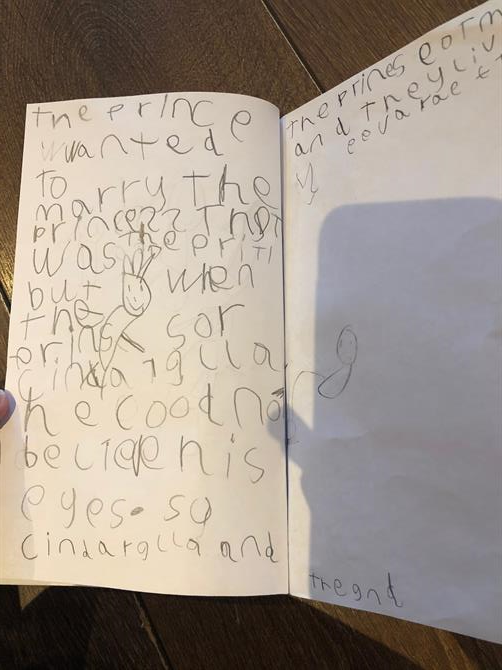 the prince
wwanted
to
marry the
princess That
was the priti
but when
the
prins sor
cindarglla
he coodnot
believe his
eyes. so
cindarglla and
the prines
and They liv
eevarae
the gnd